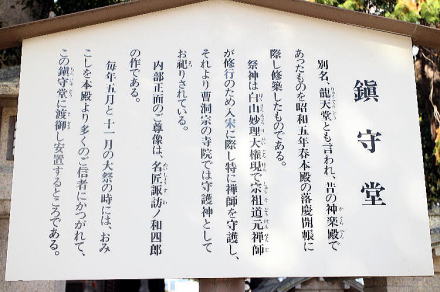 鎮守堂
別名、龍天堂とも言われ、昔の神楽殿で
あったものを昭和五年春本殿の落慶開帳に
際し修築したものである。
祭神は白山妙理大権現で宗祖道元禅師
が修行のため入宋に際し特に禅師を守護し、
それより曹洞宗の寺院では守護神として
お祀りされている。
内部正面のご尊像は、名匠諏訪ノ和四郎
の作である。
毎年五月と十一月の大祭の時には、おみ
こしを本殿より多くのご信者にかつがれて、
この鎮守堂に渡御し安置するところである。